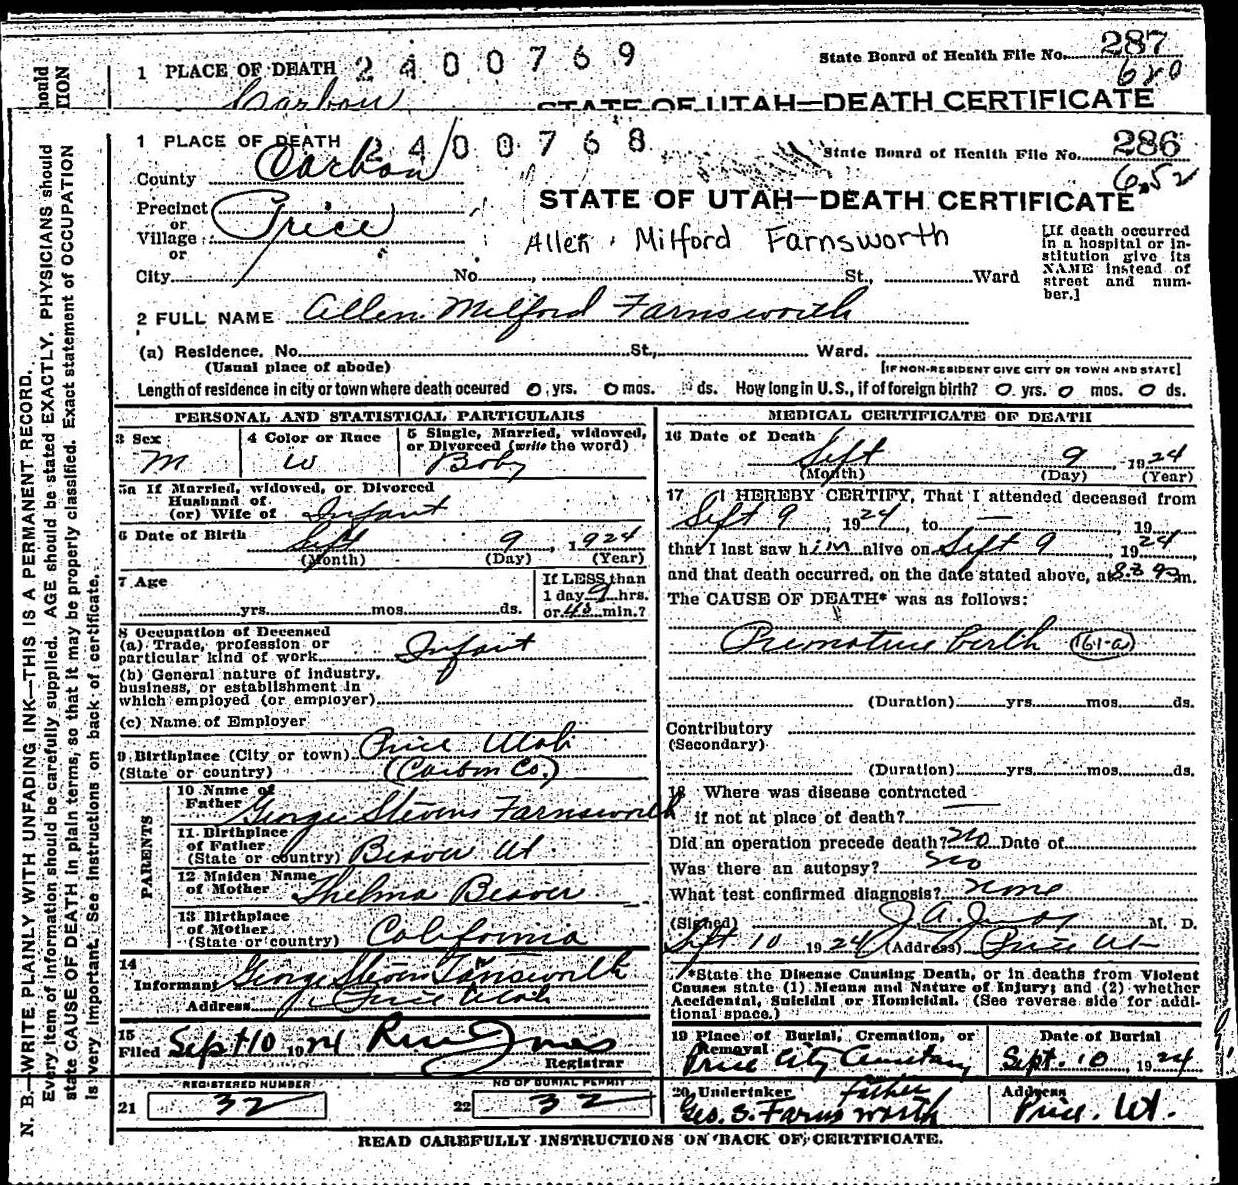 1 PLACE OF DEATH 2400769 State Board of Health File No. 287
620
Carbon STATE OF UTAH—DEATH CERTIFICATE
1 PLACE OF DEATH 2400768 State Board of Health File No. 286
652
County Carbon
STATE OF UTAH—DEATH CERTIFICATE
Precinct
or
Village Price
or
Allen Milford Farnsworth
[If death occurred in a hospital or institution give its NAME instead of street and number.]
City No. St., Ward
2 FULL NAME Allen Milford Farnsworth
(a) Residence. No. St., Ward.
(Usual place of abode) [IF NON-RESIDENT GIVE CITY OR TOWN AND STATE]
Length of residence in city or town where death oceured 0 yrs. 0 mos. ds. How long in U.S., if of foreign birth? 0 yrs. 0 mos. 0 ds.
PERSONAL AND STATISTICAL PARTICULARS
3 Sex M
4 Color or Race W
5 Single, Married, widowed, or Divorced (write the word) Baby
5a If Married, widowed, or Divorced
Husband of
(or) Wife of Infant
6 Date of Birth Sept 9, 1924
(Month) (Day) (Year)
7 Age
yrs. mos. ds.
If LESS than
1 day 9 hrs.
or 45 min.?
8 Occupation of Deceased
(a) Trade, profession or
particular kind of work Infant
(b) General nature of industry,
business, or establishment in
which employed (or employer)
(c) Name of Employer
9 Birthplace (City or town) Price Utah
(State or country) (Carbon Co.)
PARENTS
10 Name of
Father George Stevens Farnsworth
11 Birthplace
of Father
(State or country) Beaver Ut
12 Maiden Name
of Mother Thelma Beaver
13 Birthplace
of Mother
(State or country) California
14
Informant George Stevens Farnsworth
Address Price Utah
15
Filed Sept 10 1924
Registrar
REGISTERED NUMBER
21 32
NO OF BURIAL PERMIT
22 32
MEDICAL CERTIFICATE OF DEATH
16 Date of Death
Sept 9, 1924
(Month) (Day) (Year)
17 I HEREBY CERTIFY, That I attended deceased from
Sept 9, 1924, to — , 19
that I last saw him alive on Sept 9, 1924
and that death occurred, on the date stated above, at m.
The CAUSE OF DEATH* was as follows:
Premature birth (161-a)
(Duration) yrs. mos. ds.
Contributory
(Secondary)
(Duration) yrs. mos. ds.
18 Where was disease contracted
if not at place of death?
Did an operation precede death? no Date of
Was there an autopsy? no
What test confirmed diagnosis? none
(Signed) J. A. M. D.
Sept 10 1924 (Address) Price Ut
*State the Disease Causing Death, or in deaths from Violent
Causes state (1) Means and Nature of Injury; and (2) whether
Accidental, Suicidal or Homicidal. (See reverse side for addi-
tional space.)
19 Place of Burial, Cremation, or
Removal Price City Cemetary
Date of Burial
Sept. 10, 1924
20 Undertaker Father
Geo. S. Farnsworth
Address
Price. Ut.
READ CAREFULLY INSTRUCTIONS ON BACK OF CERTIFICATE.
N. B.—WRITE PLAINLY WITH UNFADING INK—THIS IS A PERMANENT RECORD.
Every item of information should be carefully supplied. AGE should be stated EXACTLY. PHYSICIANS should
state CAUSE OF DEATH in plain terms, so that it may be properly classified. Exact statement of OCCUPATION
is very important. See instructions on back of certificate.